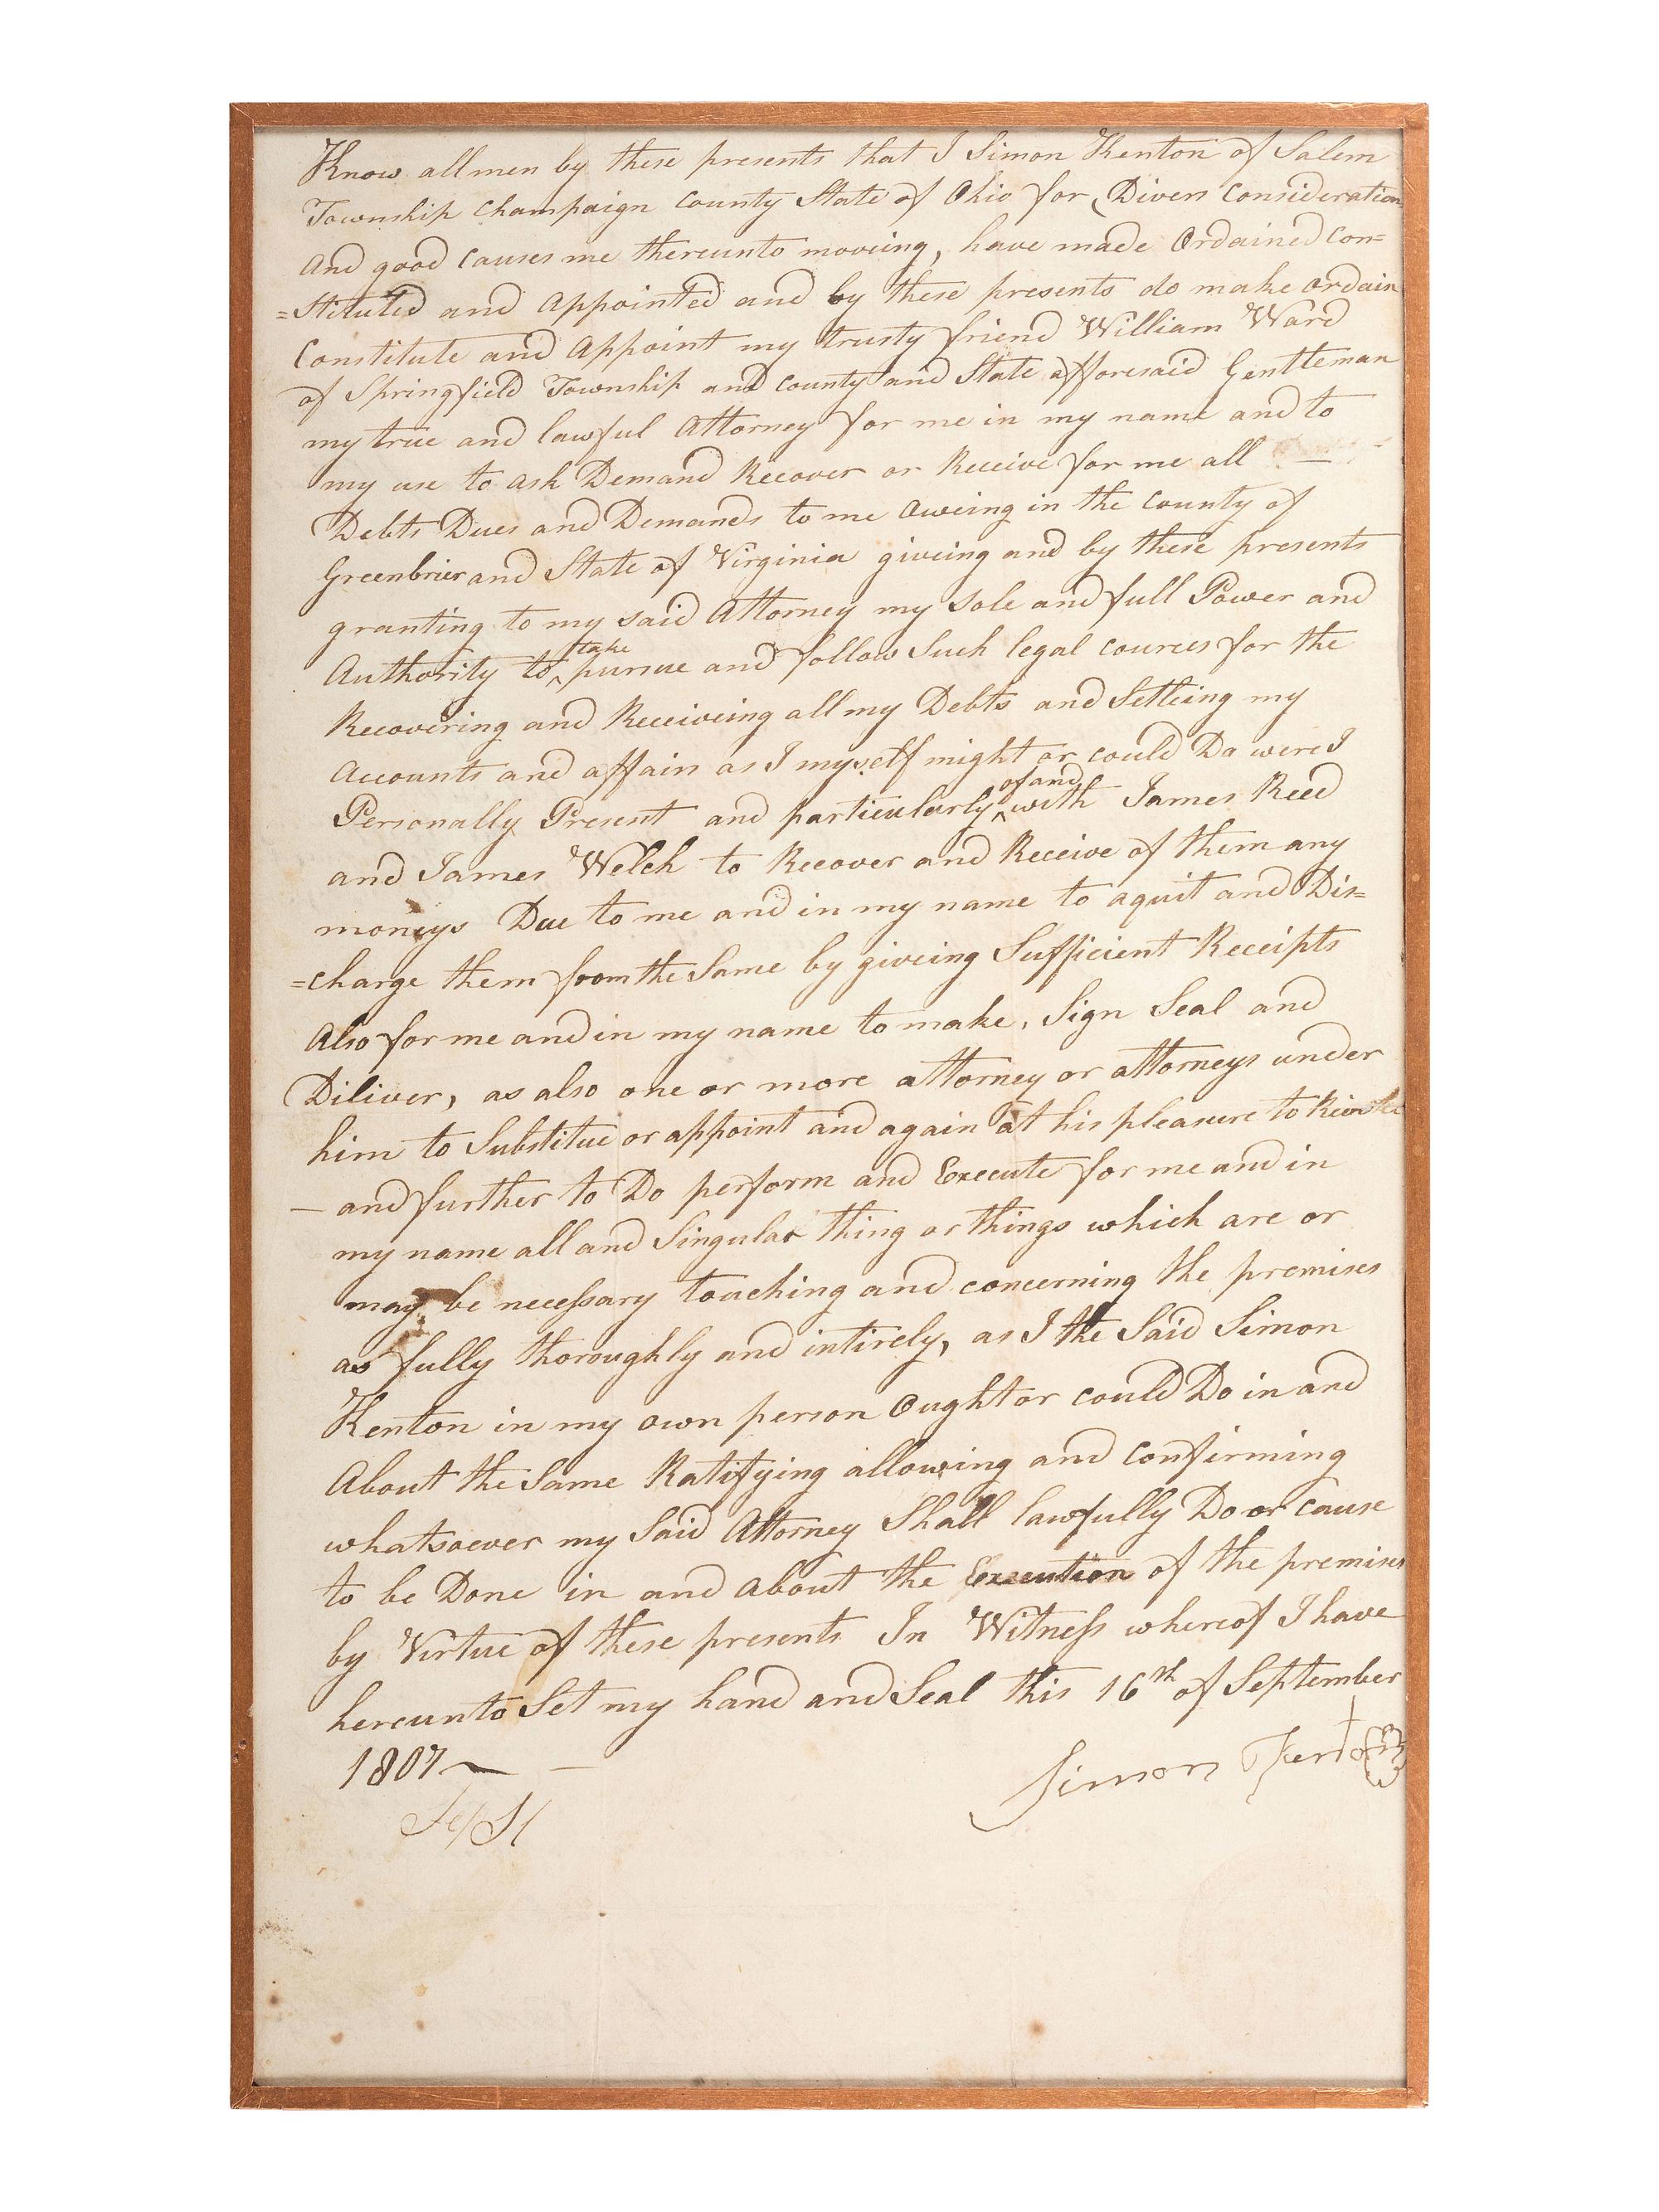 Know all men by these presents that I Simon Kenton of Salem
Township Champaign County State of Ohio for Divers Consideration
And good Causes me thereunto moveing, have made Ordained Con=
=stituted and Appointed and by these presents do make Ordain
Constitute and Appoint my trusty friend William Ward
of Springfield Township and County and State afforesaid Gentleman
my true and lawful Attorney for me in my name and to
my use to ask Demand Recover or Receive for me all —
Debts Dues and Demands to me Oweing in the County of
Greenbrier and State of Virginia giveing and by these presents
granting to my said Attorney my Sole and full Power and
Authority to ^take pursue and follow Such legal cources for the
Recovering and Receiveing all my Debts and Setleing my
Accounts and affairs as I myself might or could Do were I
Personally Present and particularly ^of and with James Reed
and James Welch to Recover and Receive of them any
moneys Due to me and in my name to aquit and Dis=
=charge them from the Same by giveing Sufficient Receipts
Also for me and in my name to make, Sign Seal and
Diliver, as also one or more attorney or attorneys under
him to Substitue or appoint and again at his pleasure to Revoke
— and further to Do perform and Execute for me and in
my name all and Singular thing or things which are or
may be necessary touching and concerning the premises
as fully thoroughly and intirely, as I the Said Simon
Kenton in my own person Ought or could Do in and
About the Same Ratifying allowing and Confirming
whatsoever my Said Attorney Shall lawfully Do or cause
to be Done in and about the Execution of the premises
by Virtue of these presents In Witness whereof I have
hereunto Set my hand and Seal this 16th of September
1807 —
Simon Kenton